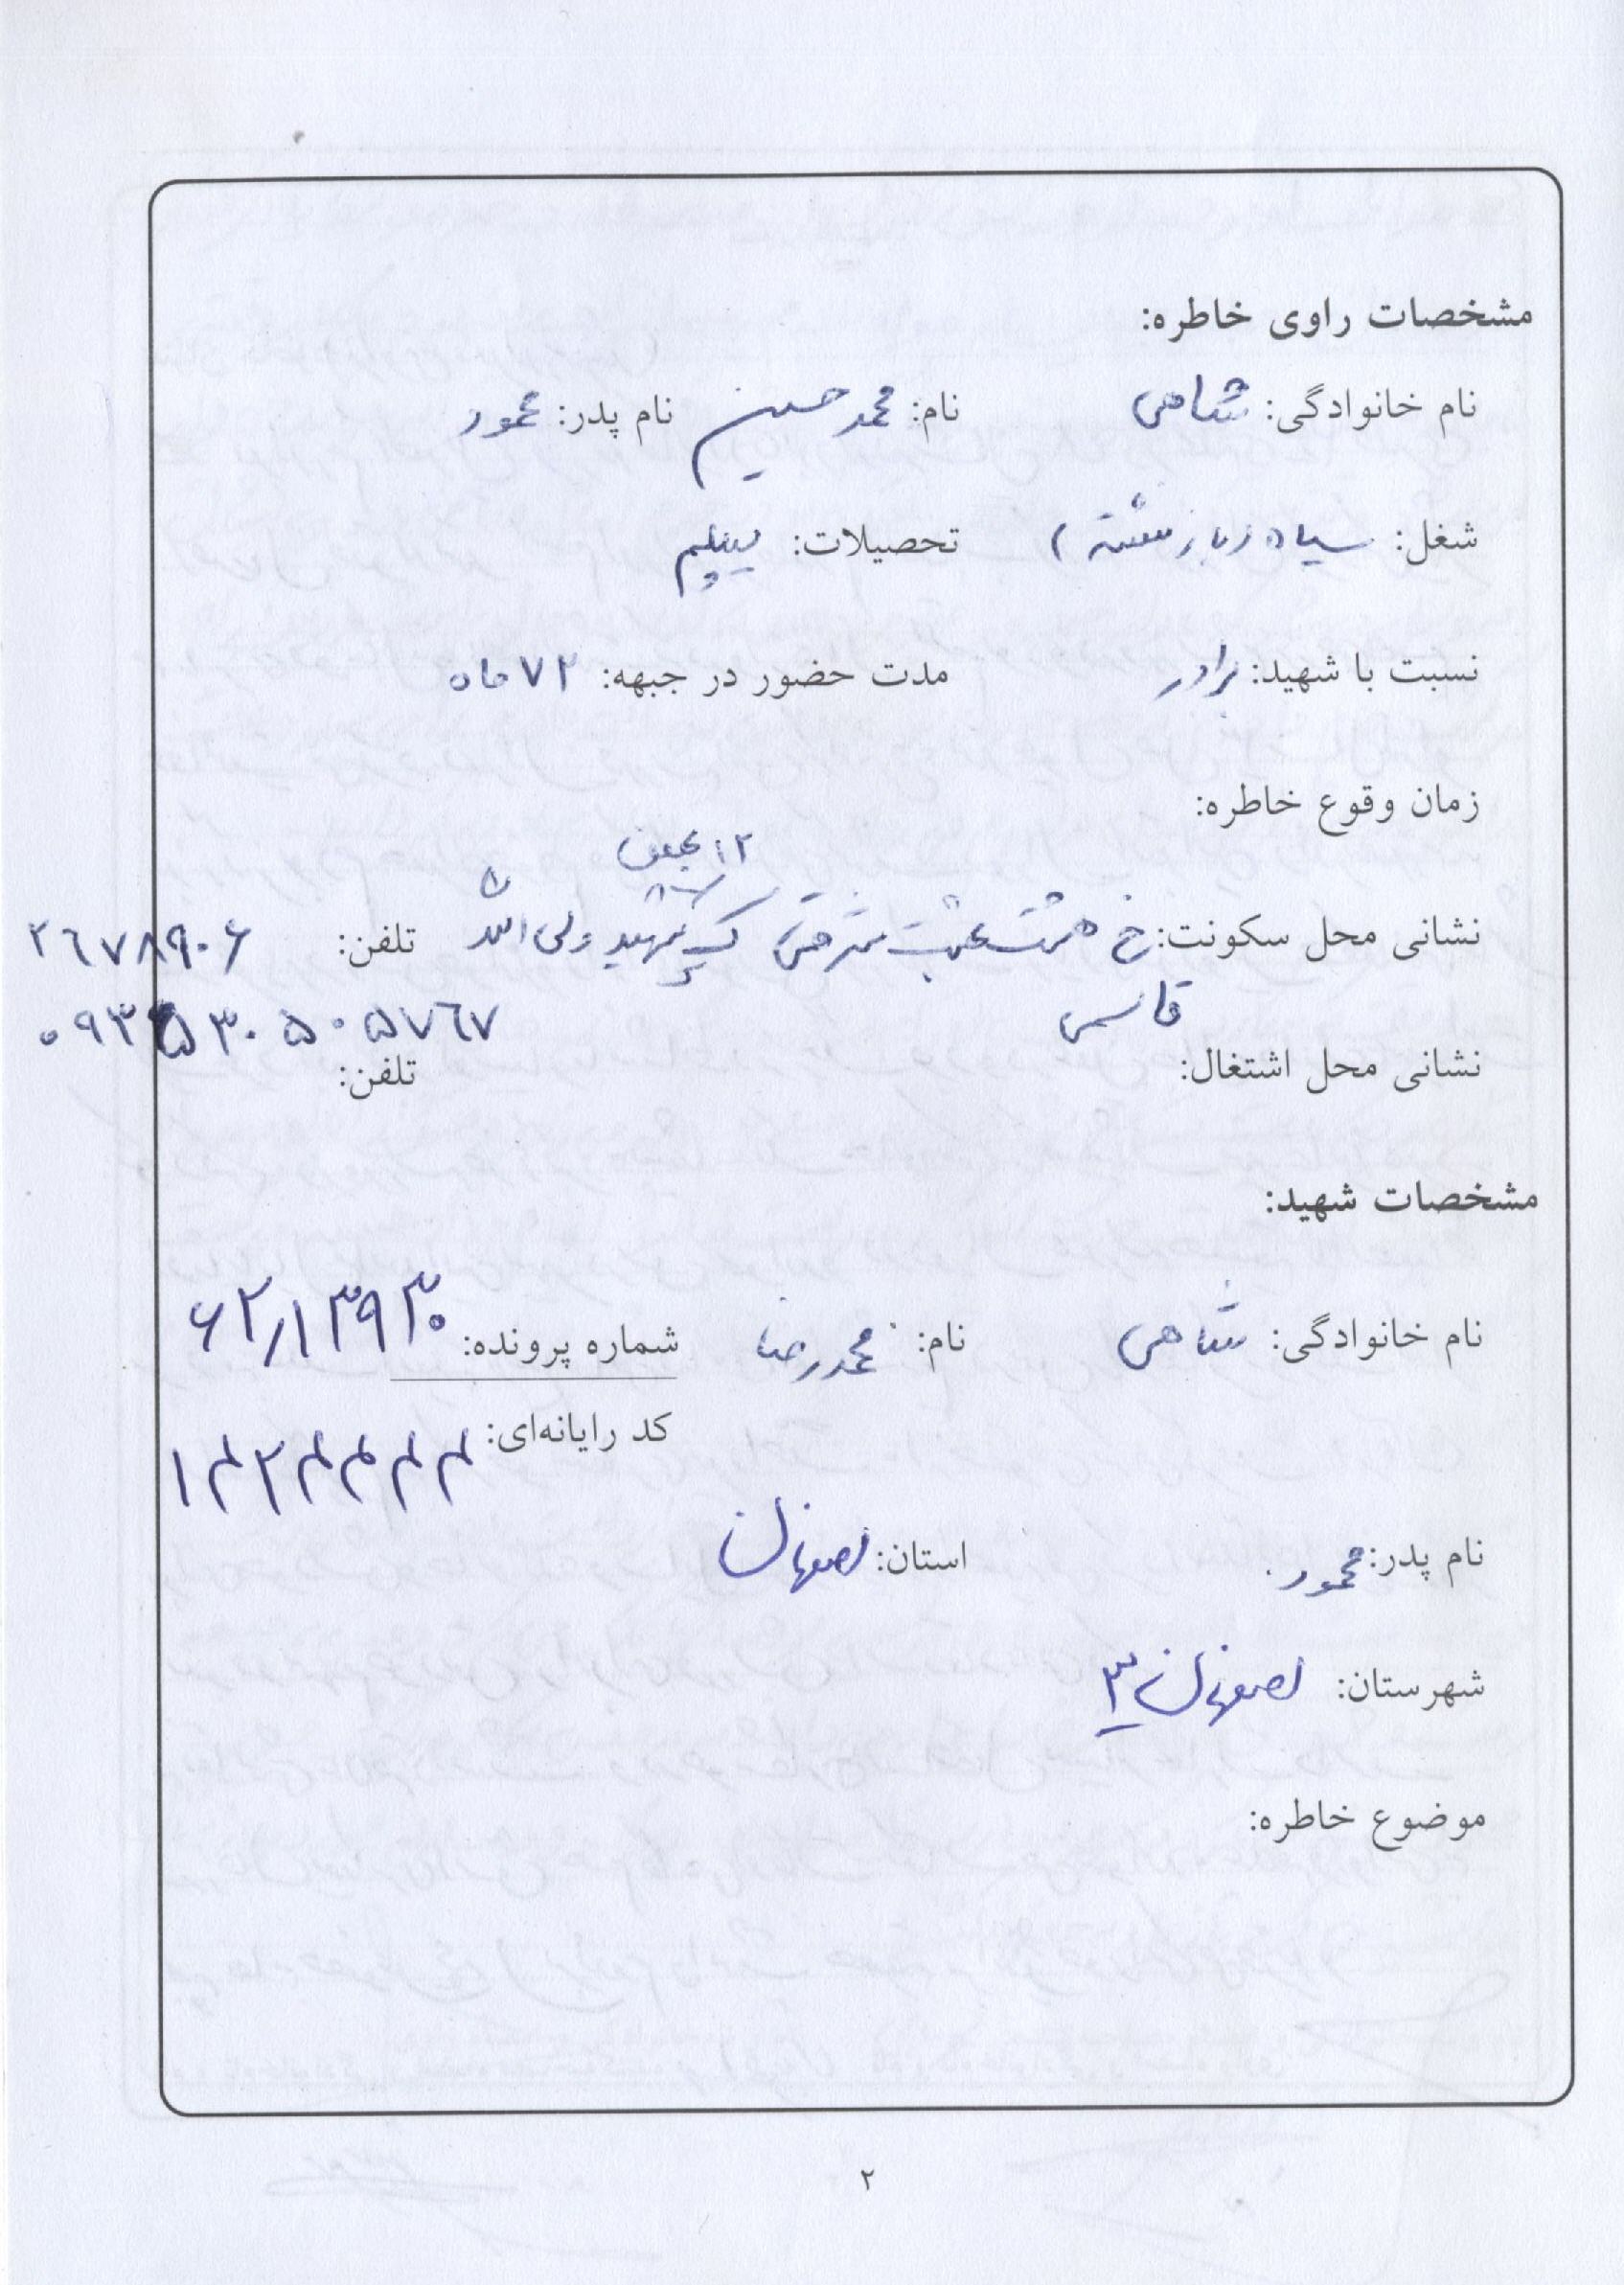 مشخصات راوی خاطره:
نام خانوادگی: شاهی نام: محمد حسین نام پدر: محمود
شغل: سپاه (بازنشسته) تحصیلات: دیپلم
نسبت با شهید: برادر مدت حضور در جبهه: ۷۲ ماه
زمان وقوع خاطره:
۱۲ بهمن
نشانی محل سکونت: خ هشت بهشت شرقی ک شهید ولی الله تلفن: ۲۶۷۸۹۰۶
قاسمی
۵۷۶۷
نشانی محل اشتغال: تلفن:
مشخصات شهید:
نام خانوادگی: شاهی نام: محمدرضا شماره پرونده: ۶۲/۱۳۹۳۰
کد رایانه‌ای: ۱۴۲۴۴۴۴
نام پدر: محمود استان: اصفهان
شهرستان: اصفهان ۳
موضوع خاطره:
۲